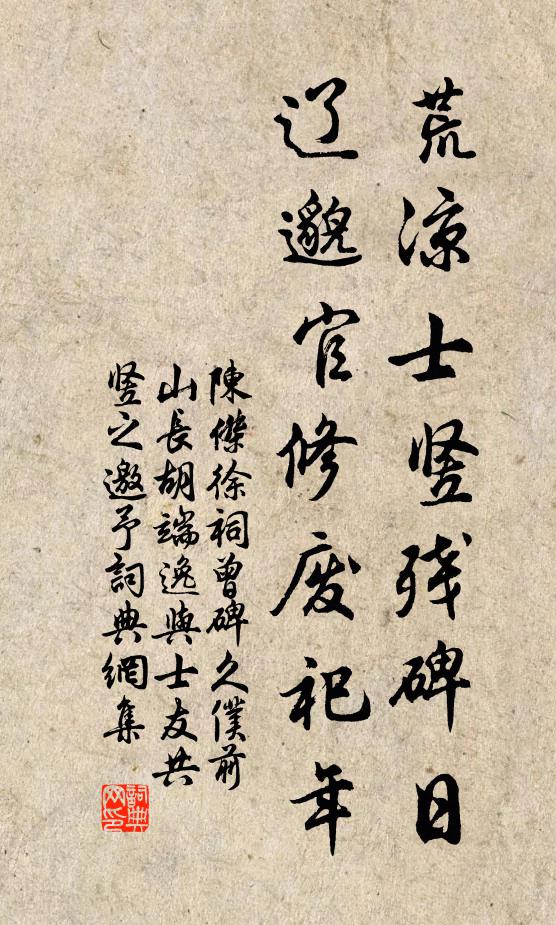 荒凉士竖残碑日
辽邈官修废祀年
陳傑徐祠曾碑久僕前
山長胡端逸與士友共
竖之邀予詞典網集
詞典
网印